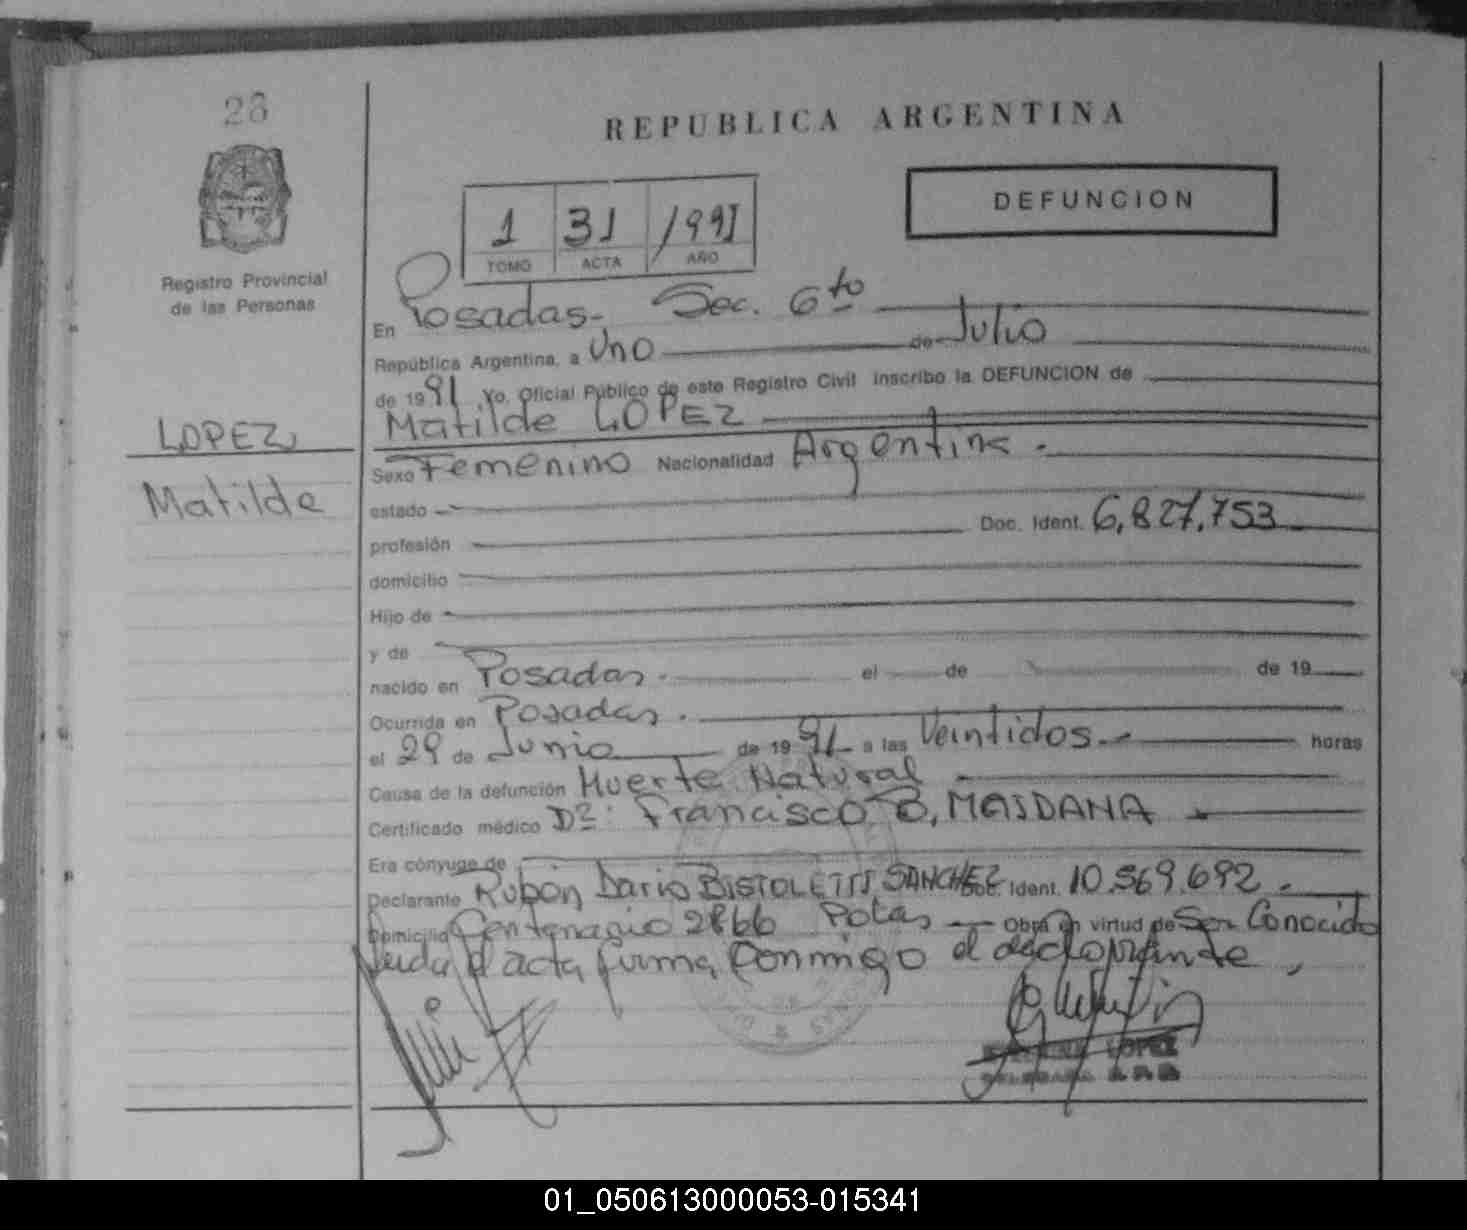 28
Registro Provincial
de las Personas
LOPEZ
Matilde
REPUBLICA ARGENTINA
DEFUNCION
1 31 1991
TOMO ACTA AÑO
En Posadas- Sec. 6to
República Argentina, a Uno de Julio
de 1991 Yo, Oficial Público de este Registro Civil inscribo la DEFUNCION de
Matilde LOPEZ
Sexo Femenino Nacionalidad Argentina.
estado
profesión Doc. Ident. 6,827,753
domicilio
Hijo de
y de
nacido en Posadas. el de de 19
Ocurrida en Posadas.
el 29 de Junio de 1991 a las Veintidos. horas
Causa de la defunción Muerte Natural
Certificado médico Dr: Francisco B, MAIDANA
Era cónyuge de
Declarante Rubén Dario BISTOLETTI SANCHEZ Doc. Ident. 10.569.692.
Domicilio Centenario 2866 Pdas Obra en virtud de Ser Conocido
Leida el acta firma conmigo el declarante,
LOPEZ
01_050613000053-015341